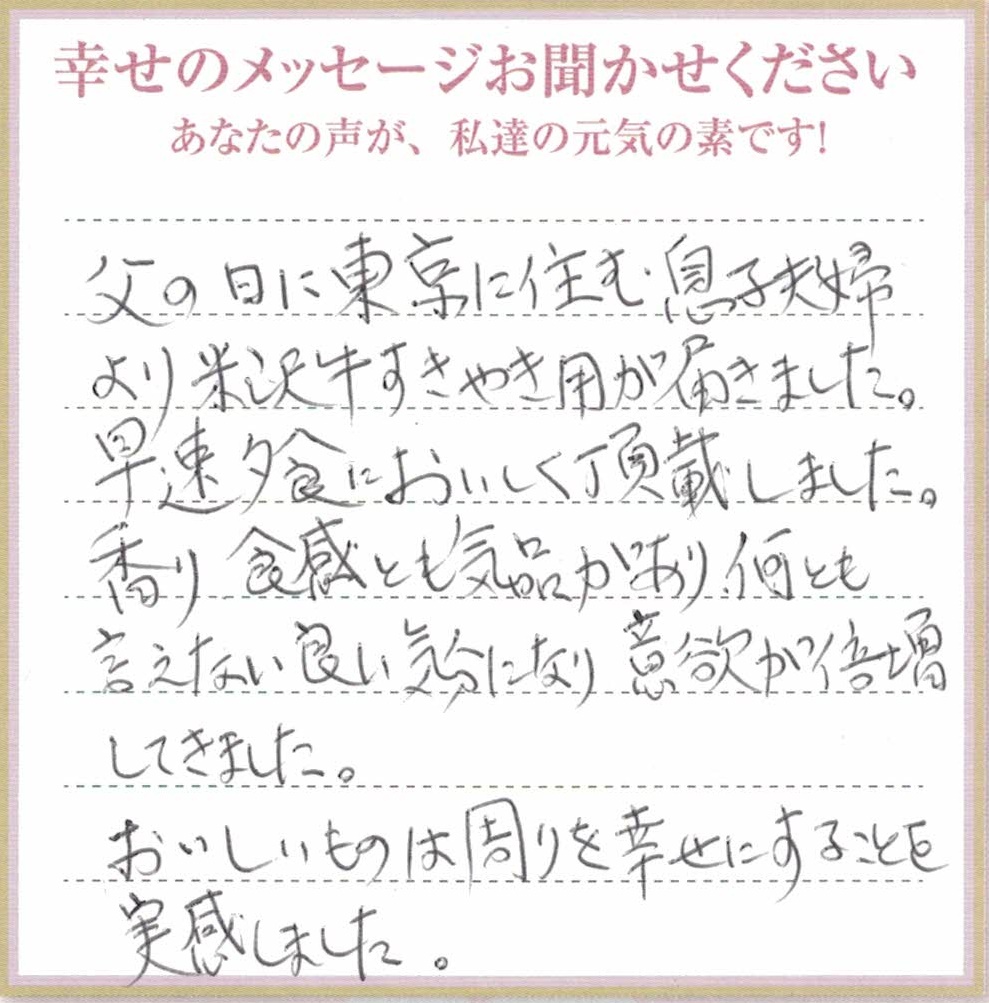 幸せのメッセージお聞かせください
あなたの声が、私達の元気の素です!
父の日に東京に住む息子夫婦
より米沢牛すきやき用が届きました。
早速夕食においしく頂載しました。
香り食感とも気品があり何とも
言えない良い気分になり意欲が倍増
してきました。
おいしいものは周りを幸せにすることを
実感しました。